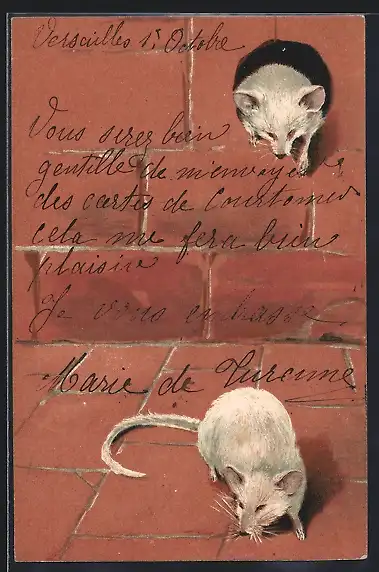 Versailles 1r Octobre
Vous serez bien
gentille de m'envoyer
des cartes de Courtomer
cela me fera bien
plaisir
Je vous embrasse
Marie de Turenne